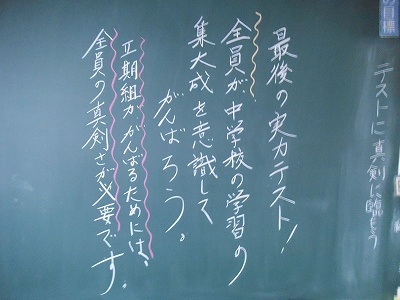 の目標
テストに真剣に臨もう
最後の実力テスト!
全員が、中学校の学習の
集大成を意識して
がんばろう。
Ⅱ期組が、がんばるためには、
全員の真剣さが必要です。